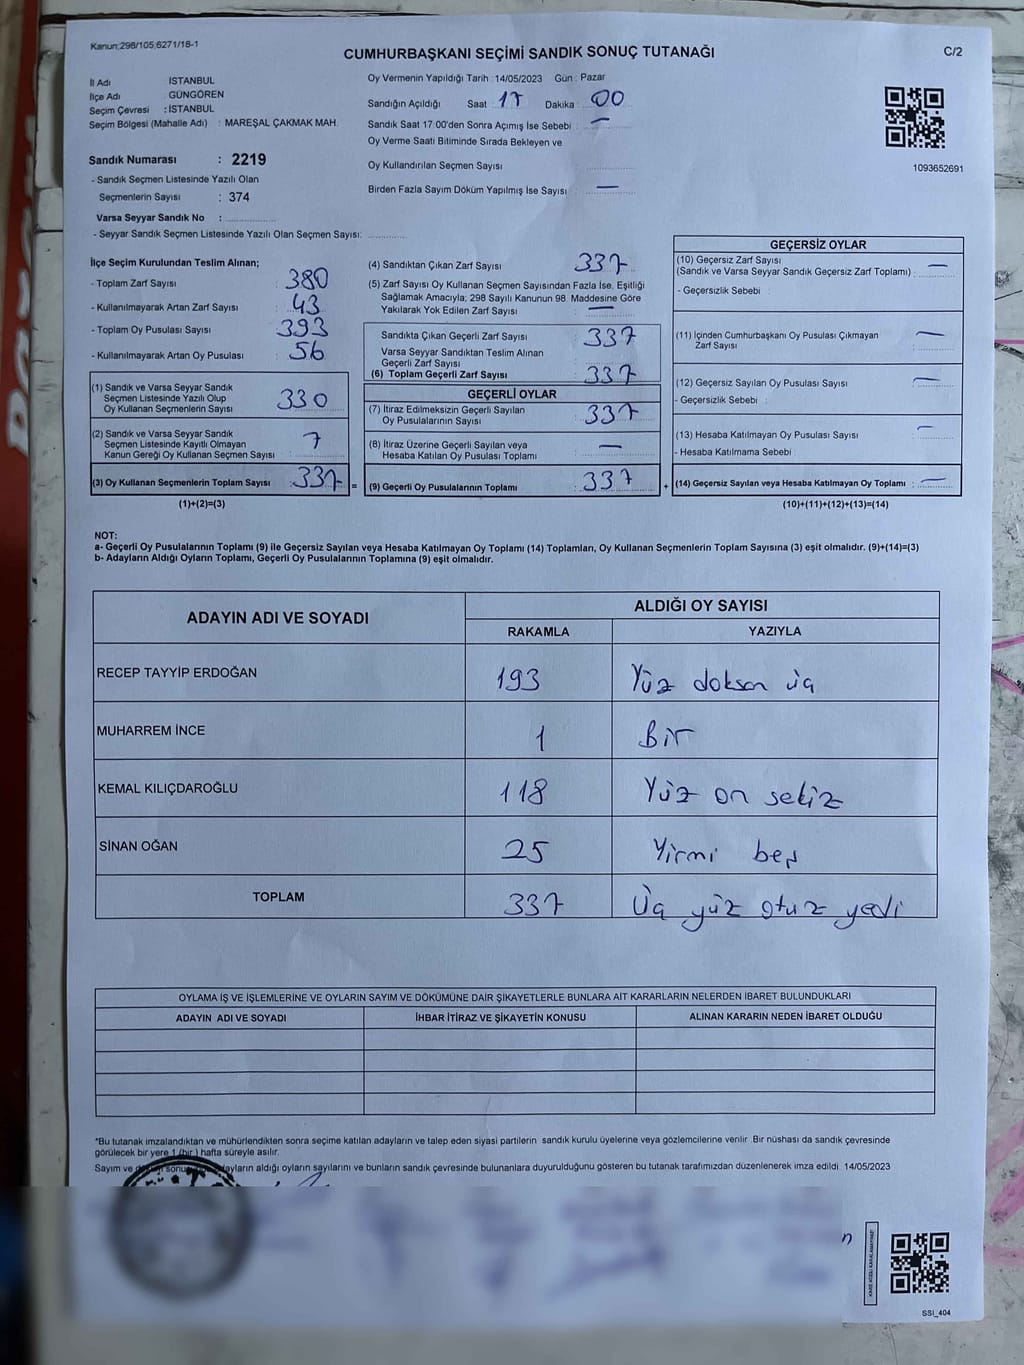 Kanun;298/105;6271/18-1
CUMHURBAŞKANI SEÇİMİ SANDIK SONUÇ TUTANAĞI
C/2
İl Adı İSTANBUL
İlçe Adı : GÜNGÖREN
Seçim Çevresi : İSTANBUL
Seçim Bölgesi (Mahalle Adı) : MAREŞAL ÇAKMAK MAH.
Sandık Numarası : 2219
- Sandık Seçmen Listesinde Yazılı Olan
Seçmenlerin Sayısı : 374
Varsa Seyyar Sandık No :
- Seyyar Sandık Seçmen Listesinde Yazılı Olan Seçmen Sayısı:
Oy Vermenin Yapıldığı Tarih : 14/05/2023 Gün : Pazar
Sandığın Açıldığı Saat 17 Dakika : 00
Sandık Saat 17:00'den Sonra Açımış İse Sebebi : —
Oy Verme Saati Bitiminde Sırada Bekleyen ve
Oy Kullandırılan Seçmen Sayısı
Birden Fazla Sayım Döküm Yapılmış İse Sayısı : —
1093652691
İlçe Seçim Kurulundan Teslim Alınan;
- Toplam Zarf Sayısı : 380
- Kullanılmayarak Artan Zarf Sayısı : 43
- Toplam Oy Pusulası Sayısı : 393
- Kullanılmayarak Artan Oy Pusulası : 56
(1) Sandık ve Varsa Seyyar Sandık
Seçmen Listesinde Yazılı Olup
Oy Kullanan Seçmenlerin Sayısı : 330
(2) Sandık ve Varsa Seyyar Sandık
Seçmen Listesinde Kayıtlı Olmayan
Kanun Gereği Oy Kullanan Seçmen Sayısı : 7
(3) Oy Kullanan Seçmenlerin Toplam Sayısı : 337 =
(1)+(2)=(3)
(4) Sandıktan Çıkan Zarf Sayısı 337
(5) Zarf Sayısı Oy Kullanan Seçmen Sayısından Fazla İse, Eşitliği
Sağlamak Amacıyla; 298 Sayılı Kanunun 98. Maddesine Göre
Yakılarak Yok Edilen Zarf Sayısı : —
Sandıkta Çıkan Geçerli Zarf Sayısı : 337
Varsa Seyyar Sandıktan Teslim Alınan
Geçerli Zarf Sayısı
(6) Toplam Geçerli Zarf Sayısı : 337
GEÇERLİ OYLAR
(7) İtiraz Edilmeksizin Geçerli Sayılan
Oy Pusulalarının Sayısı : 337
(8) İtiraz Üzerine Geçerli Sayılan veya
Hesaba Katılan Oy Pusulası Toplamı : —
(9) Geçerli Oy Pusulalarının Toplamı : 337 +
GEÇERSİZ OYLAR
(10) Geçersiz Zarf Sayısı
(Sandık ve Varsa Seyyar Sandık Geçersiz Zarf Toplamı) : —
- Geçersizlik Sebebi :
(11) İçinden Cumhurbaşkanı Oy Pusulası Çıkmayan
Zarf Sayısı : —
(12) Geçersiz Sayılan Oy Pusulası Sayısı : —
- Geçersizlik Sebebi :
(13) Hesaba Katılmayan Oy Pusulası Sayısı : —
- Hesaba Katılmama Sebebi :
(14) Geçersiz Sayılan veya Hesaba Katılmayan Oy Toplamı : —
(10)+(11)+(12)+(13)=(14)
NOT:
a- Geçerli Oy Pusulalarının Toplamı (9) ile Geçersiz Sayılan veya Hesaba Katılmayan Oy Toplamı (14) Toplamları, Oy Kullanan Seçmenlerin Toplam Sayısına (3) eşit olmalıdır. (9)+(14)=(3)
b- Adayların Aldığı Oyların Toplamı, Geçerli Oy Pusulalarının Toplamına (9) eşit olmalıdır.
ADAYIN ADI VE SOYADI ALDIĞI OY SAYISI
RAKAMLA YAZIYLA
RECEP TAYYİP ERDOĞAN 193 Yüz doksan üç
MUHARREM İNCE 1 Bir
KEMAL KILIÇDAROĞLU 118 Yüz on sekiz
SİNAN OĞAN 25 Yirmi beş
TOPLAM 337 Üç yüz otuz yedi
OYLAMA İŞ VE İŞLEMLERİNE VE OYLARIN SAYIM VE DÖKÜMÜNE DAİR ŞİKAYETLERLE BUNLARA AİT KARARLARIN NELERDEN İBARET BULUNDUKLARI
ADAYIN ADI VE SOYADI İHBAR İTİRAZ VE ŞİKAYETİN KONUSU ALINAN KARARIN NEDEN İBARET OLDUĞU
*Bu tutanak imzalandıktan ve mühürlendikten sonra seçime katılan adayların ve talep eden siyasi partilerin sandık kurulu üyelerine veya gözlemcilerine verilir. Bir nüshası da sandık çevresinde
görülecek bir yere 1 (bir ) hafta süreyle asılır.
Sayım ve adayların aldığı oyların sayılarını ve bunların sandık çevresinde bulunanlara duyurulduğunu gösteren bu tutanak tarafımızdan düzenlenerek imza edildi. 14/05/2023
SSI_404